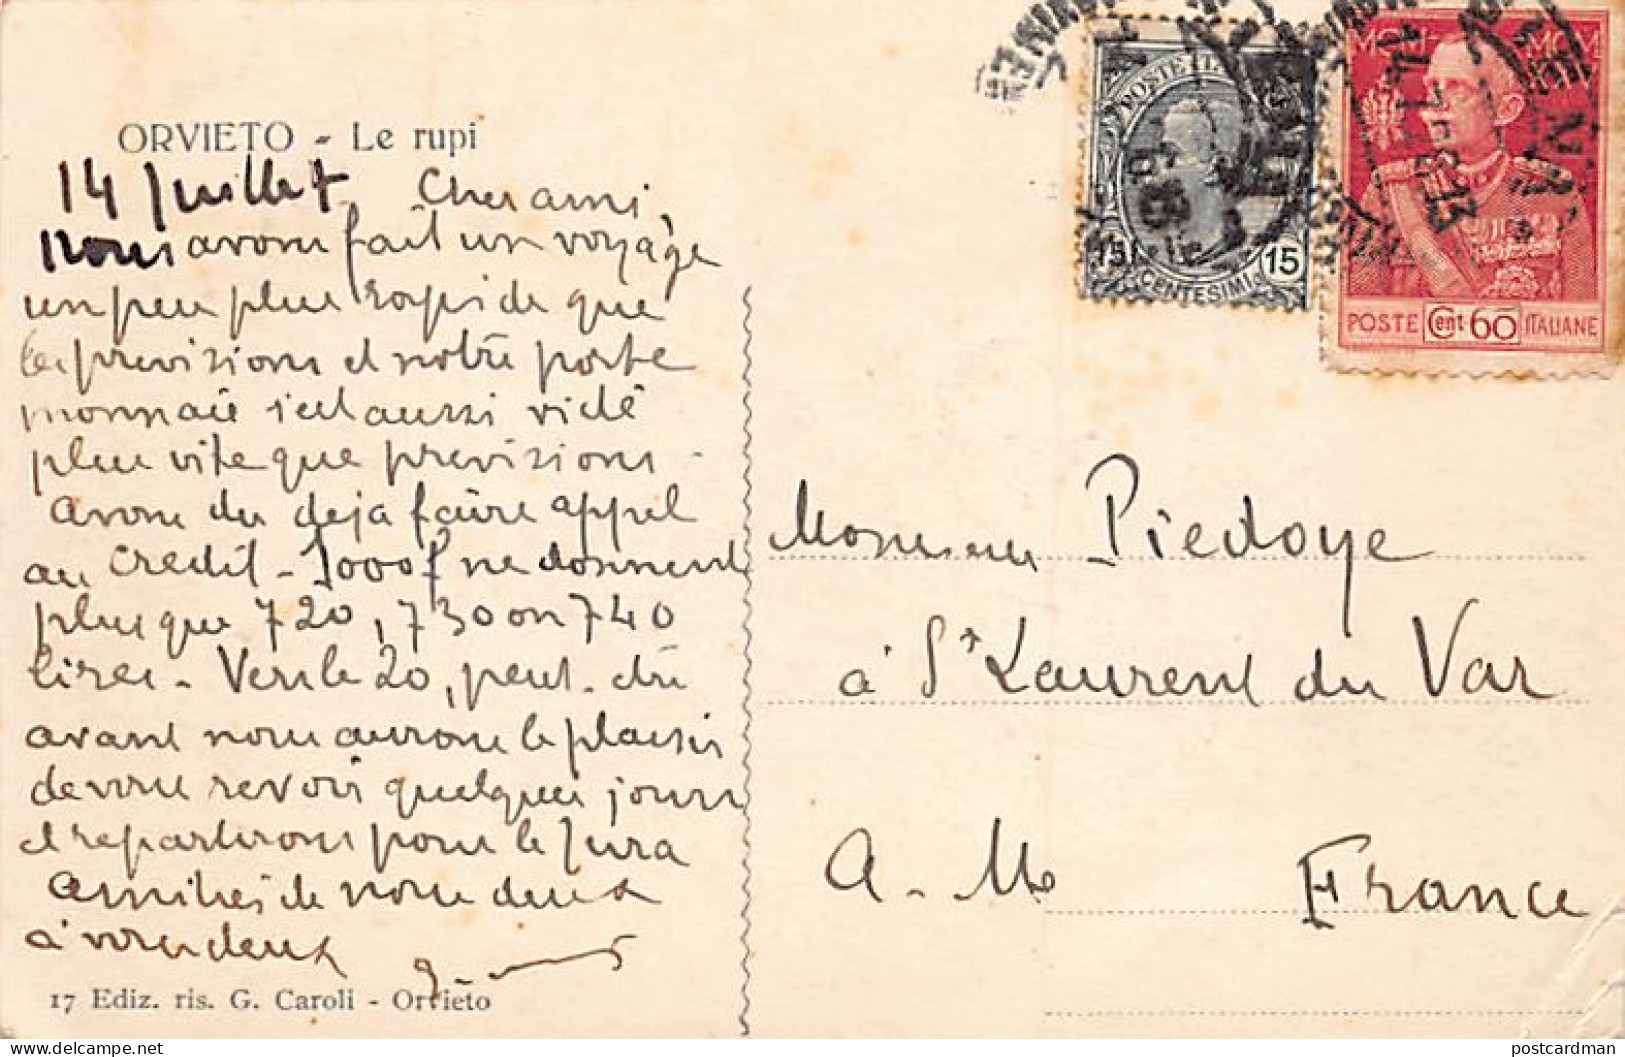 ORVIETO - Le rupi
14 Juillet. Cher ami,
Nous avons fait un voyage
un peu plus rapide que
les prévisions et notre porte
monnaie s'est aussi vidé
plus vite que prévisions -
avons du deja faire appel
au credit - 1000 f ne donnent
plus que 720, 730 ou 740
lires - Vers le 20, peut-être
avant nous aurons le plaisir
de vous revoir quelques jours
et repartirons pour le Jura
Amitiés de nous deux
à vous deux
17 Ediz. ris. G. Caroli - Orvieto
POSTE
15
15
CENTESIMI
MCM
MCM
POSTE Cent 60 ITALIANE
14-7
Monsieur Piedoye
à St Laurent du Var
A. M.
France
postcardman